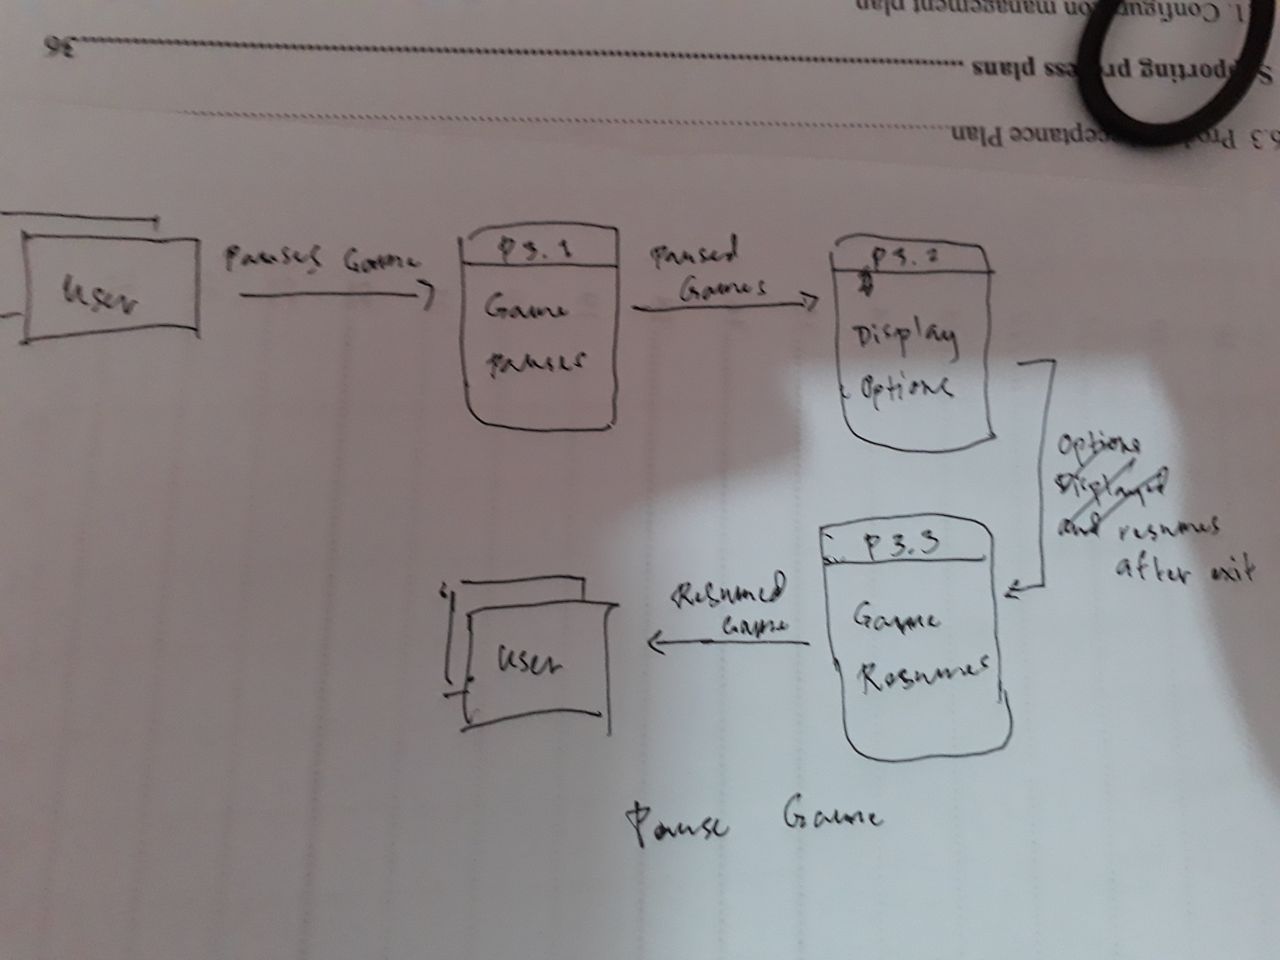 1. Configuration management plan
Supporting process plans
36
6.3 Product Acceptance Plan
User
Pauses Game
P 3.1
Game
Pauses
Paused
Games
P3.2
Display
Options
Options
Displayed
and resumes
after exit
P 3.3
Game
Resumes
Resumed
Game
User
Pause Game